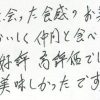 違った食感のお
おいしく仲間と食べ
好評 高評価で
美味しかったです